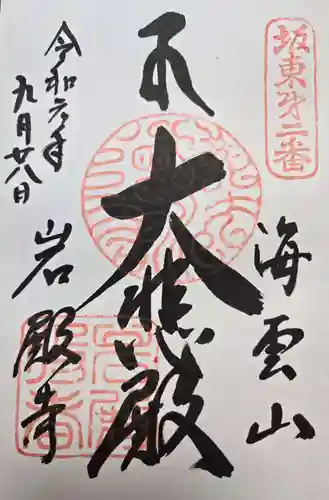 坂東㐧二番
海雲山
大悲殿
令和元年
九月廿八日
岩殿寺